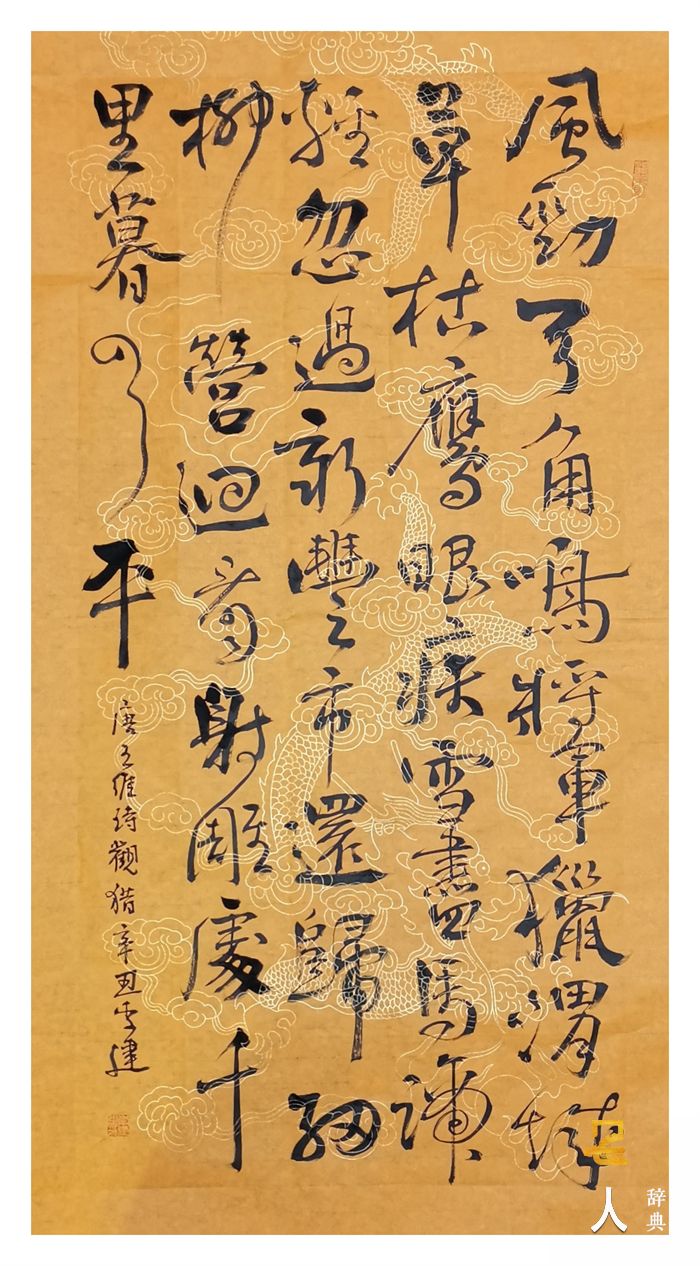 風勁弓角鳴將軍獵渭城
草枯鷹眼疾雪盡馬蹄
輕忽過新豐市還歸細
柳營迴看射雕處千
里暮云平
唐王維詩觀猎辛丑李建
人
辞典